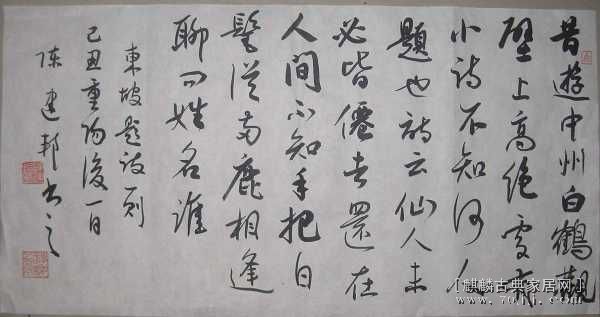 昔遊中州白鶴觀
壁上高绝處有
小詩不知何人
題也詩云仙人未
必皆僊去還在
人間不知手把白
髦從兩鹿相逢
聊问姓名誰
東坡題詩一则
己丑重陽後一日
陳建邦書之
[麒麟古典家居网]